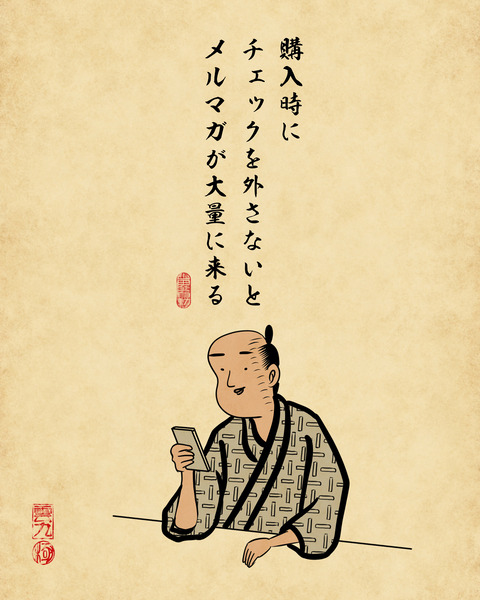 購入時に
チェックを外さないと
メルマガが大量に来る